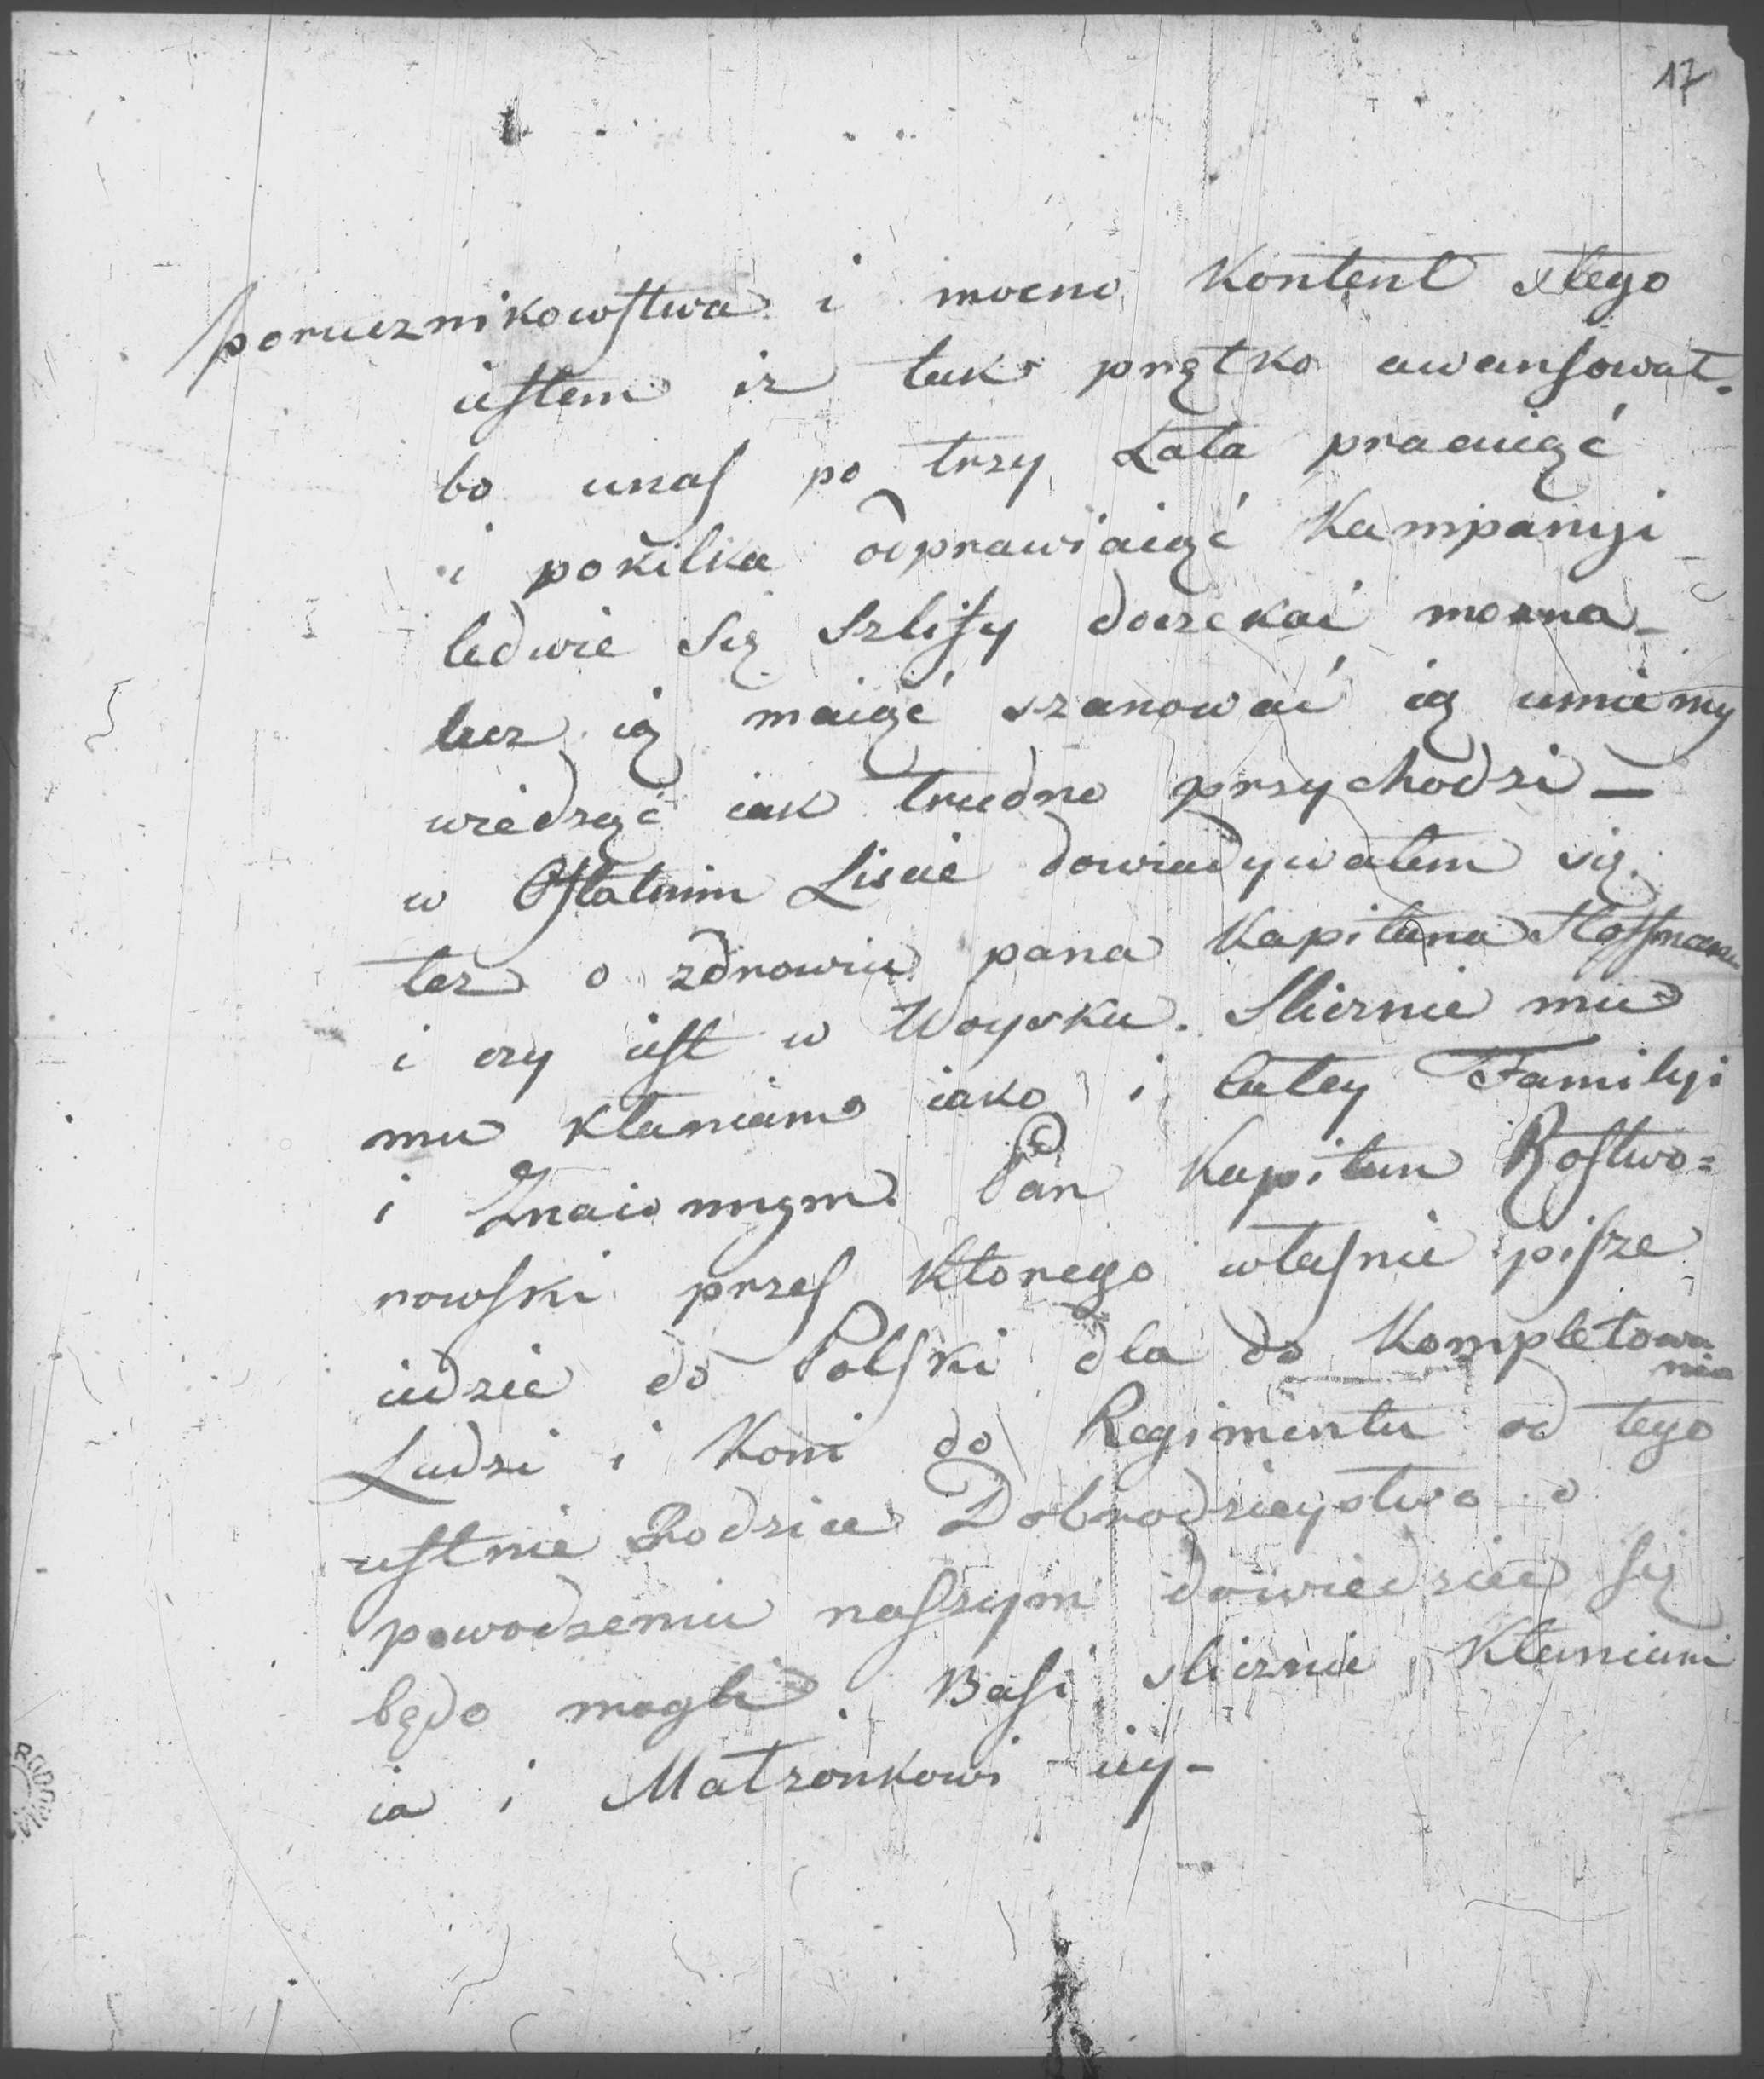 17
porucznikowstwa i mocno kontent ztego
iestem iz tak prętko awansował.
bo unas po trzy Lata pracuiąć
i pokilka odprawiaiąć kampanyi
ledwie Się Szlify doczekać mozna_
lecz ią maiąć szanować ią umiemy
wiedząć iak trudno przychodzi —
w Ostatnim Liscie dowiadywałem się
tez o zdrowiu pana Kapitana Hoffmana
i czy iest w Woysku. Slicznie mu
mu kłaniam iako i całey Familyi
i Znaiomym. Pan Kapitan Rostwo=
rowski przes ktorego własnie pisze
iedzie do Polski dla do Kompletowa
nia
Ludzi i Koni do Regimentu od tego
ustnie Rodzice Dobrodzieystwo o
powodzeniu naszym dowiedziec się
będo mogli. Basi slicznie kłaniam
ia i Małzonkowi iey-